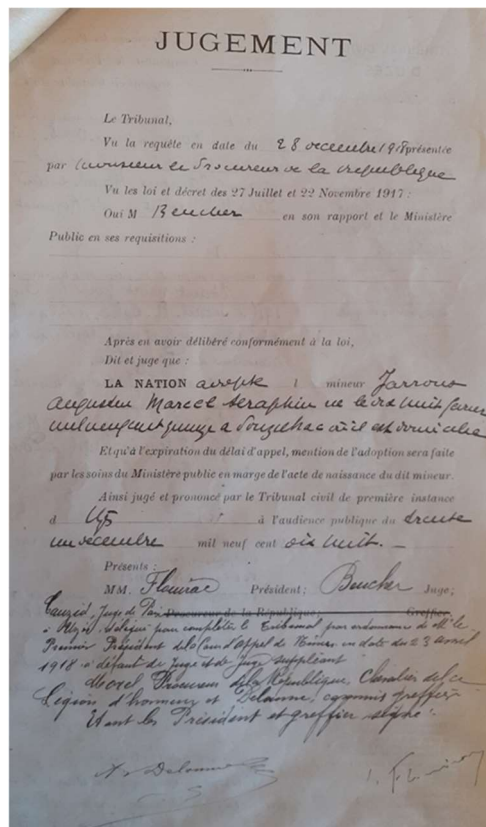 JUGEMENT
Le Tribunal,
Vu la requête en date du 28 decembre 1918 présentée
par Monsieur le Procureur de la republique
Vu les loi et décret des 27 Juillet et 22 Novembre 1917 :
Oui M Beucher en son rapport et le Ministère
Public en ses requisitions :
Après en avoir délibéré conformément à la loi,
Dit et juge que :
LA NATION adopte l mineur
Augustin Marcel Seraphin ne le dix huit
mil neuf cent quinze a ou il est domicilie
Et qu'à l'expiration du délai d'appel, mention de l'adoption sera faite
par les soins du Ministère public en marge de l'acte de naissance du dit mineur.
Ainsi jugé et prononcé par le Tribunal civil de première instance
d à l'audience publique du trente
un decembre mil neuf cent dix huit. —
Présents :
MM. Président; Beucher Juge;
Juge de Paix Procureur de la République; Greffier,
délégué pour compléter le Tribunal par ordonnance de Mr le
Premier Président de la Cour d'appel de Nimes en date du 23 avril
1918 à défaut de juge et de juge suppléant
Morel Procureur de la République, Chevalier de la
Légion d'honneur et Delanne, commis greffier
Etant les Président et greffier signé :
Delanne